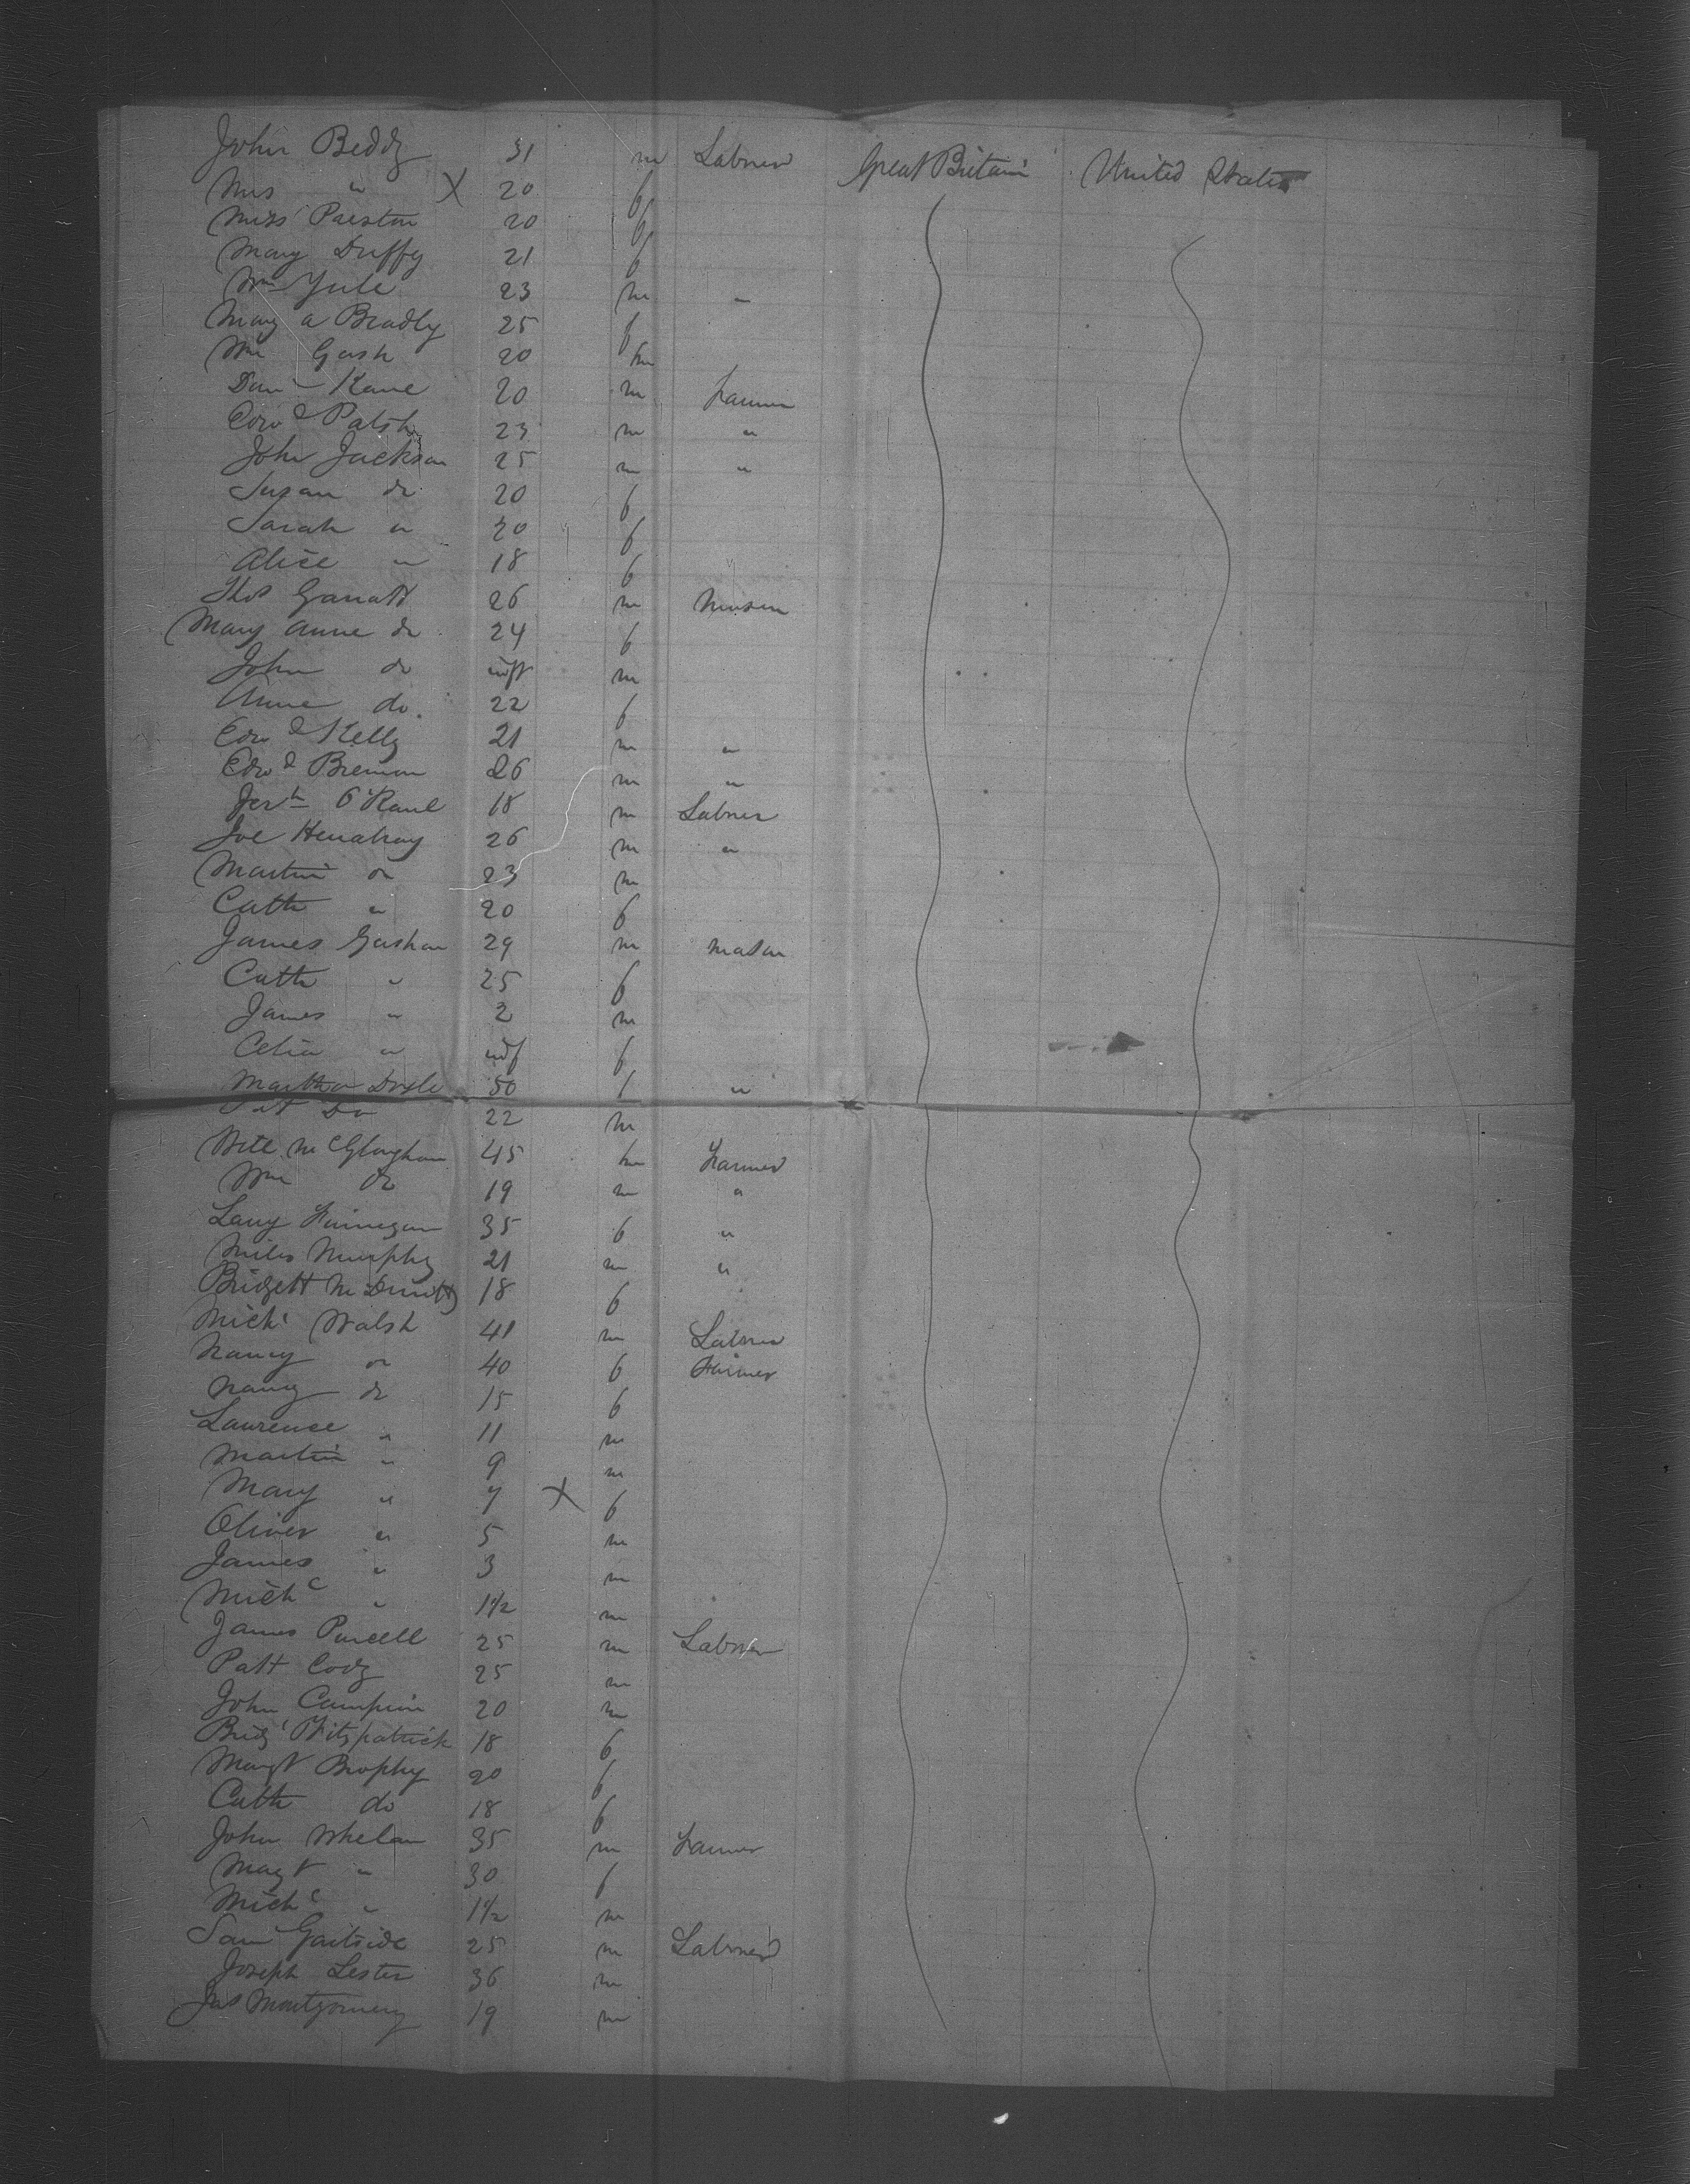 John Beddy 31 m Labner Great Britain United States
Mrs " X 20 f
Miss Preston 20 f
Mary Duffy 21 f
Wm Yule 23 m "
Mary A Bradly 25 f
Wm Gash 20 m
Danl Kane 20 m Farmer
Edwd 23 m "
John Jackson 25 m "
Susan do 20 f
Sarah " 20 f
Alice " 18 f
Thos Garratt 26 m
Mary Anne do 24 f
John do inft m
Anne do. 22 f
Edwd Kelly 21 m "
Edwd Brennan 26 m "
18 m Labner
Joe 26 m "
Martin do 23 m
Cath " 20 f
James 29 m mason
Cath " 25 f
James " 2 m
Celia " inf f
Martha 50 f "
Do 22 m
45 m Farmer
Wm do 19 m "
Finnegan 35 f "
Miles Murphy 21 m "
Bridgett 18 f
Michl Walsh 41 m Labner
Nancy do 40 f Farmer
Nancy do 15 f
Lawrence " 11 m
Martin " 9 m
Mary " 7 X f
Oliver " 5 m
James " 3 m
Michl " 1 1/2 m
James Purcell 25 m Labner
Patt Cody 25 m
John Campion 20 m
Bridt Fitzpatrick 18 f
Margt Brophy 20 f
Cath do 18 f
John Whelan 35 m Farmer
Magt " 30 f
Michl " 1 1/2 m
Sam Gartside 25 m Labner
Joseph Lester 36 m
Jas Montgomery 19 m